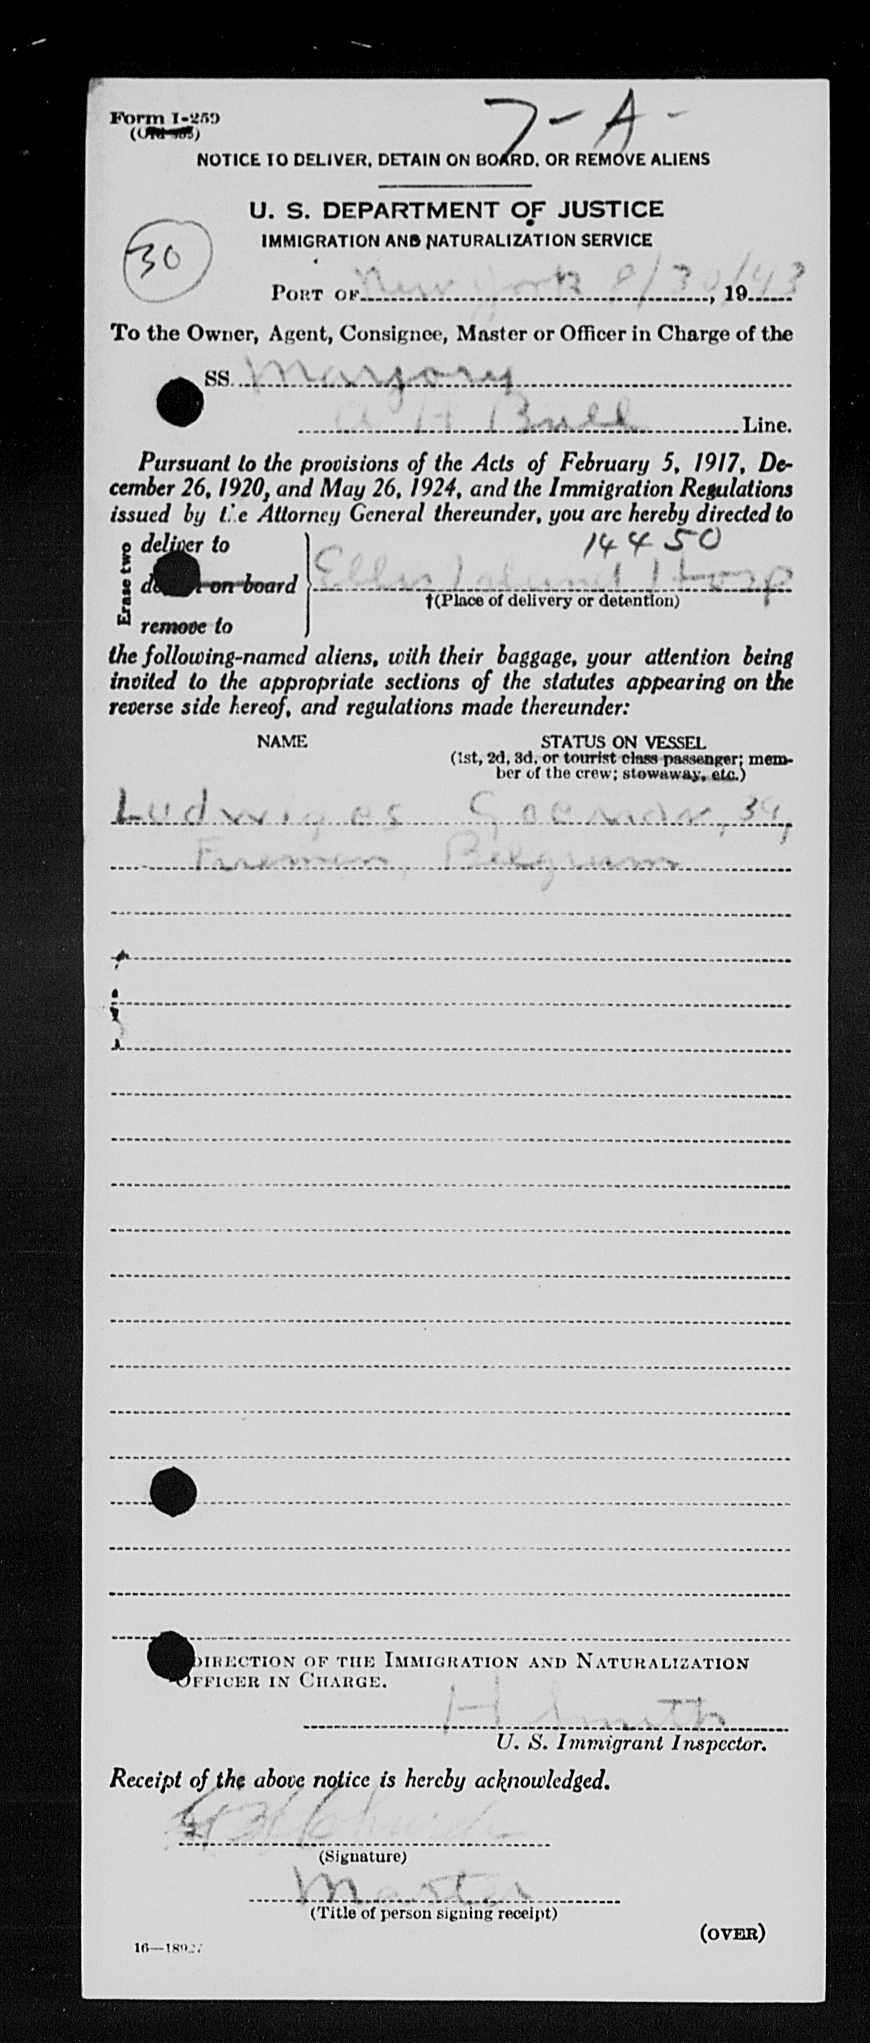 7-A-
Form I-259
(Old 555)
NOTICE TO DELIVER, DETAIN ON BOARD, OR REMOVE ALIENS
U. S. DEPARTMENT OF JUSTICE
IMMIGRATION AND NATURALIZATION SERVICE
30
PORT OF New York 8/30/43, 19
To the Owner, Agent, Consignee, Master or Officer in Charge of the
SS. Margory
A H Bull Line.
Pursuant to the provisions of the Acts of February 5, 1917, De-
cember 26, 1920, and May 26, 1924, and the Immigration Regulations
issued by the Attorney General thereunder, you are hereby directed to
Erase two
deliver to
14450
on board
Ellis Island Hosp
†(Place of delivery or detention)
remove to
the following-named aliens, with their baggage, your attention being
invited to the appropriate sections of the statutes appearing on the
reverse side hereof, and regulations made thereunder:
NAME STATUS ON VESSEL
(1st, 2d, 3d, or tourist class passenger; mem-
ber of the crew; stowaway, etc.)
Ludwig es 39,
Fireman, Belgium
DIRECTION OF THE IMMIGRATION AND NATURALIZATION
OFFICER IN CHARGE.
H Smith
U. S. Immigrant Inspector.
Receipt of the above notice is hereby acknowledged.
(Signature)
Master
(Title of person signing receipt)
(OVER)
16—18927